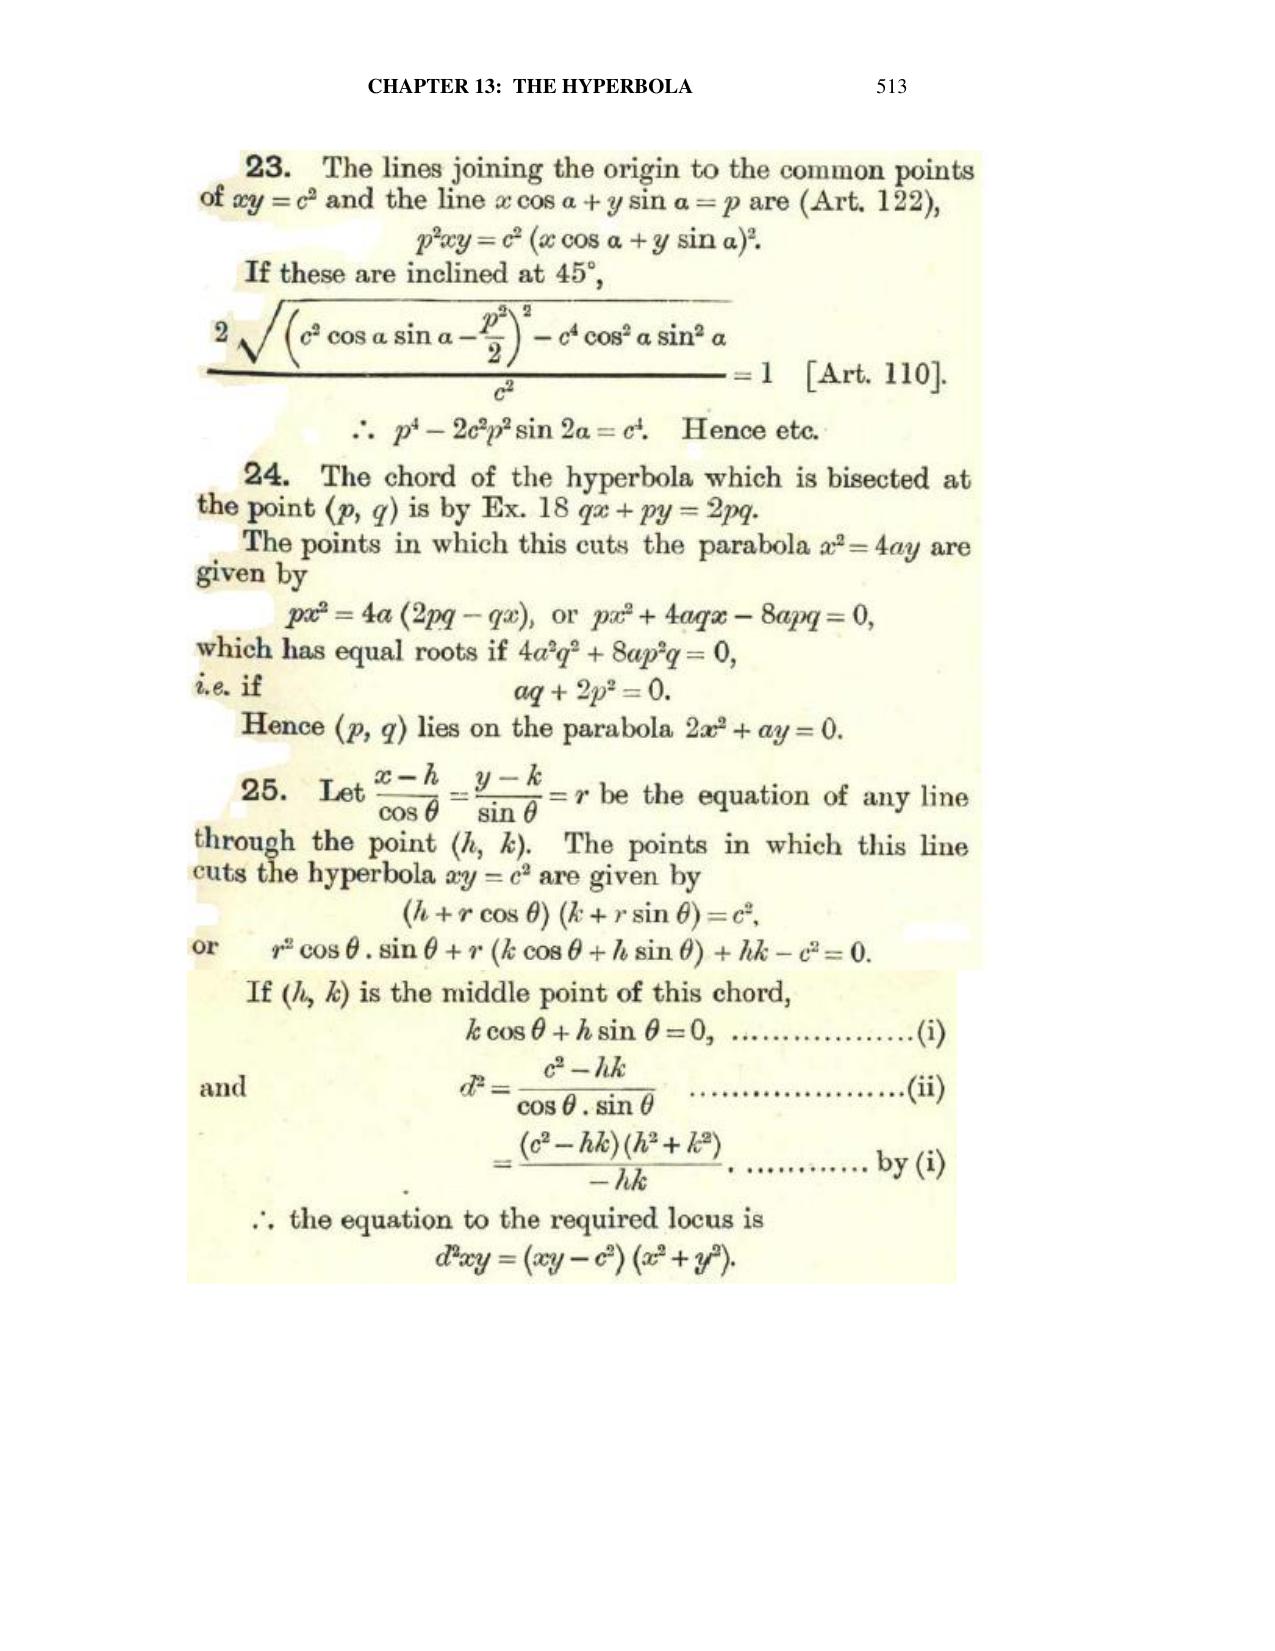 CHAPTER 13: THE HYPERBOLA 513
23. The lines joining the origin to the common points
of xy = c² and the line x cos α + y sin α = p are (Art. 122),
p²xy = c² (x cos α + y sin α)².
If these are inclined at 45°,
2 √((c² cos α sin α − p²/2)² − c⁴ cos² α sin² α) / c² = 1 [Art. 110].
∴ p⁴ − 2c²p² sin 2α = c⁴. Hence etc.
24. The chord of the hyperbola which is bisected at
the point (p, q) is by Ex. 18 qx + py = 2pq.
The points in which this cuts the parabola x² = 4ay are
given by
px² = 4a (2pq − qx), or px² + 4aqx − 8apq = 0,
which has equal roots if 4a²q² + 8ap²q = 0,
i.e. if aq + 2p² = 0.
Hence (p, q) lies on the parabola 2x² + ay = 0.
25. Let (x − h)/cos θ = (y − k)/sin θ = r be the equation of any line
through the point (h, k). The points in which this line
cuts the hyperbola xy = c² are given by
(h + r cos θ) (k + r sin θ) = c²,
or r² cos θ . sin θ + r (k cos θ + h sin θ) + hk − c² = 0.
If (h, k) is the middle point of this chord,
k cos θ + h sin θ = 0, ...................(i)
and d² = (c² − hk)/(cos θ . sin θ) .....................(ii)
= (c² − hk)(h² + k²)/(− hk). ............ by (i)
∴ the equation to the required locus is
d²xy = (xy − c²) (x² + y²).